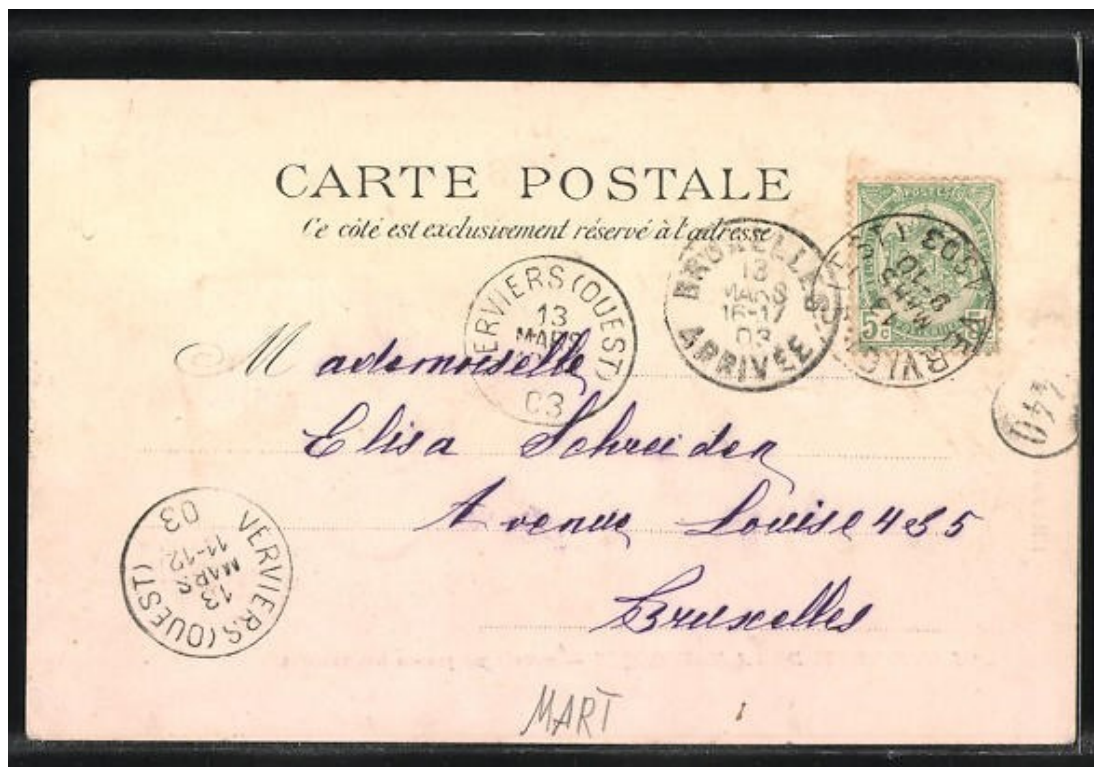 CARTE POSTALE
Ce côté est exclusivement réservé à l'adresse
5c
BRUXELLES
13
MARS
16-17
03
ARRIVÉE
VERVIERS (OUEST)
13
MARS
03
440
Mademoiselle
Elisa Schreiden
Avenue Louise 455
Bruxelles
VERVIERS (OUEST)
13
MARS
11-12
03
MART